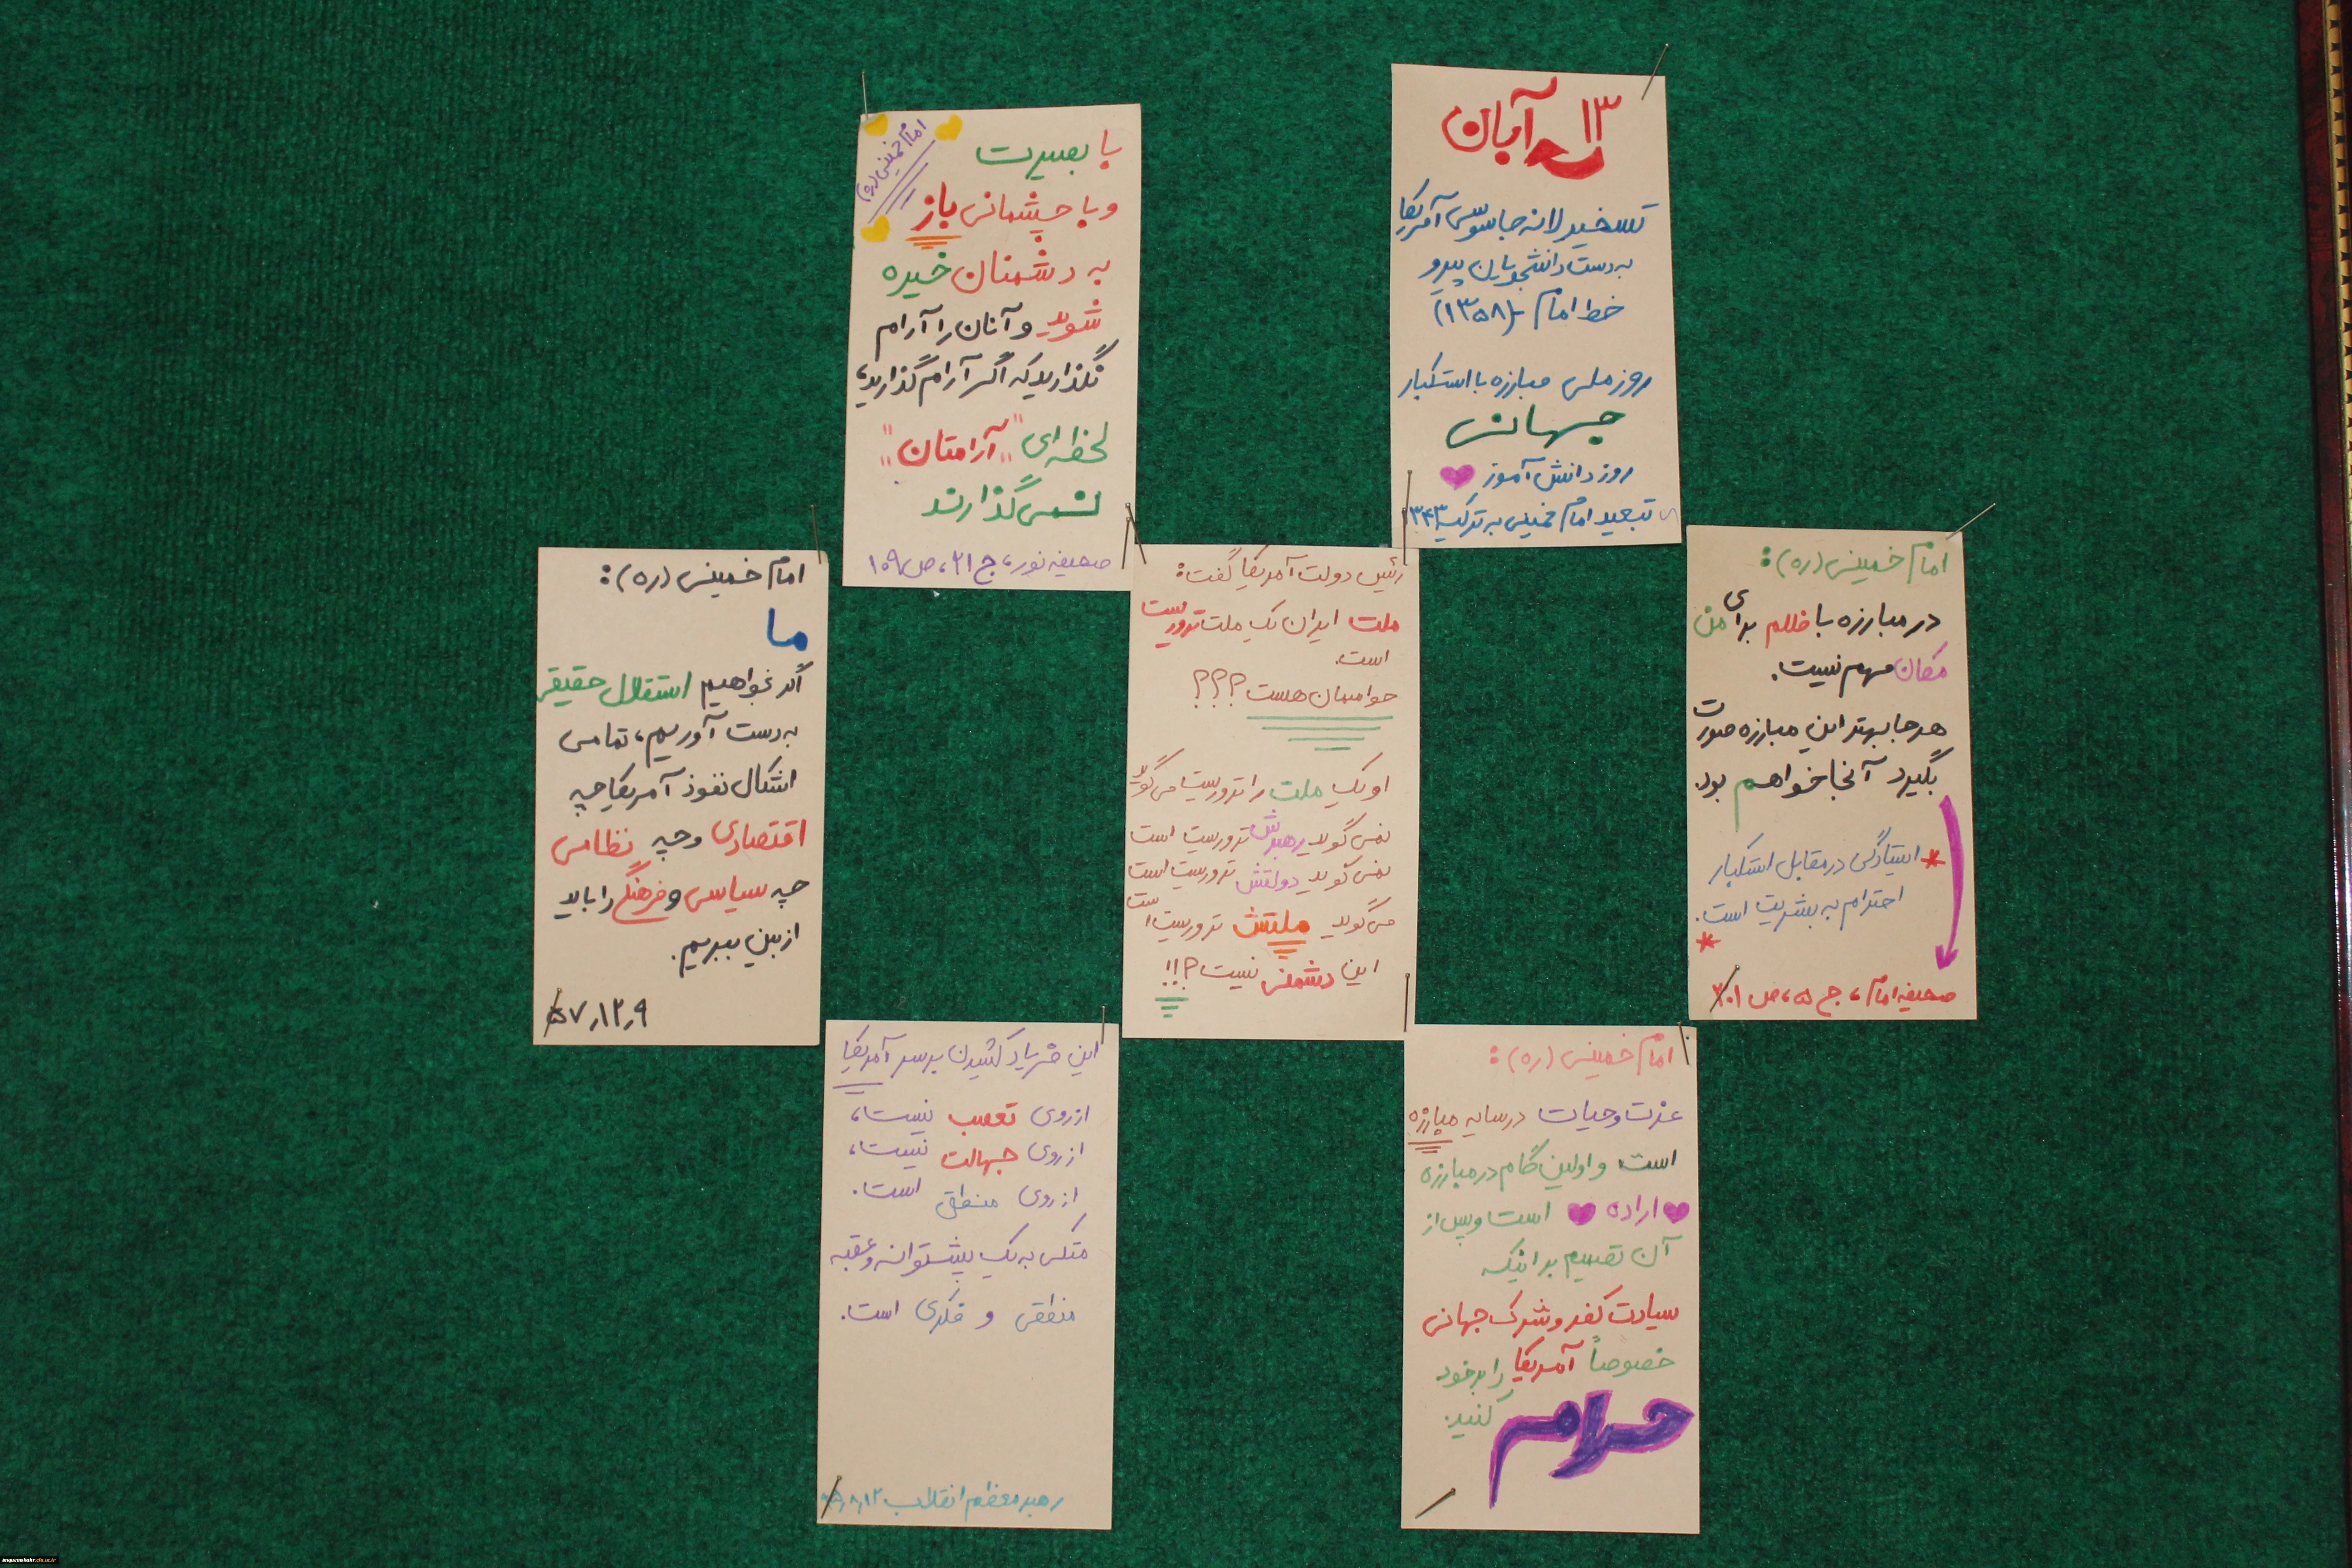 ۱۳ آبان
تسخیر لانه جاسوسی آمریکا
به دست دانشجویان پیرو
خط امام (۱۳۵۸)
روز ملی مبارزه با استکبار
جهانی
روز دانش آموز
تبعید امام خمینی به ترکیه ۱۳۴۳
امام خمینی (ره)
با بصیرت
و با چشمانی باز
به دشمنان خیره
شوید و آنان را آرام
نگذارید که اگر آرام گذارید،
لحظه ای "آرامتان"
نمی گذارند
صحیفه نور، ج ۲۱، ص ۱۰۹
امام خمینی (ره):
در مبارزه با ظلم برای من
مکان مهم نیست.
هر جا بهتر این مبارزه صورت
بگیرد آنجا خواهم بود.
* ایستادگی در مقابل استکبار
احترام به بشریت است. *
صحیفه امام، ج ۵، ص ۳۰۱
رئیس دولت آمریکا گفت:
ملت ایران یک ملت تروریست
است.
حواسمان هست؟؟؟
او یک ملت را تروریست می گوید
نمی گوید رهبرش تروریست است
نمی گوید دولتش تروریست است
می گوید ملتش تروریست است
این دشمنی نیست؟!!
امام خمینی (ره):
ما
اگر بخواهیم استقلال حقیقی
به دست آوریم، تمامی
اشکال نفوذ آمریکا چه
اقتصادی و چه نظامی
چه سیاسی و فرهنگی را باید
از بین ببریم.
۵۷٫۱۲٫۹
امام خمینی (ره):
عزت و حیات در سایه مبارزه
است و اولین گام در مبارزه
اراده است و پس از
آن تصمیم بر اینکه
سیادت کفر و شرک جهانی
خصوصاً آمریکا را بر خود
حرام کنید.
این فریاد کشیدن بر سر آمریکا
از روی تعصب نیست،
از روی جهالت نیست،
از روی منطق است.
متکی به یک پشتوانه و عقبه
منطقی و فکری است.
رهبر معظم انقلاب ۹۵٫۸٫۱۲